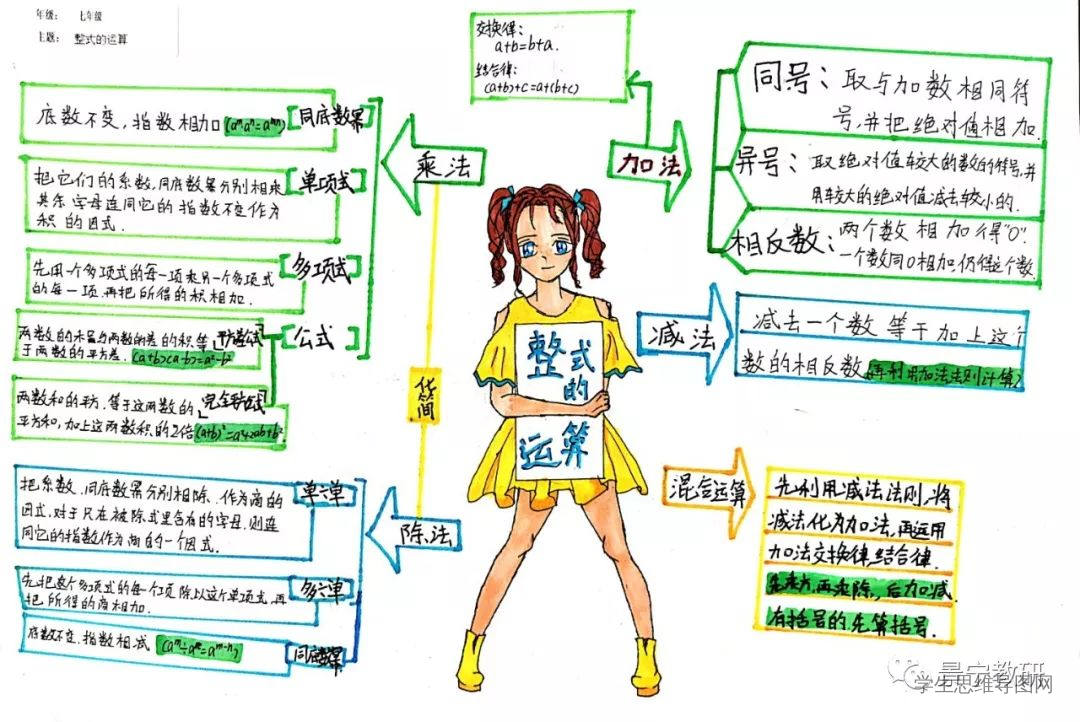 年级： 七年级
主题： 整式的运算
交换律：
a+b=b+a.
结合律：
(a+b)+c=a+(b+c)
加法
同号：取与加数相同符
号,并把绝对值相加.
异号：取绝对值较大的数的符号,并
用较大的绝对值减去较小的.
相反数：两个数相加得"0".
一个数同0相加,仍得这个数.
减法
减去一个数等于加上这个
数的相反数,再利用加法法则计算.
混合运算
先利用减法法则,将
减法化为加法,再运用
加法交换律,结合律.
先乘方,再乘除,后加减.
有括号的,先算括号.
乘法
同底数幂
底数不变,指数相加
单项式
把它们的系数,同底数幂分别相乘
其余字母连同它的指数不变作为
积的因式.
多项式
先用一个多项式的每一项乘另一个多项式
的每一项,再把所得的积相加.
公式
平方差公式
两数的和与两数的差的积,等
于两数的平方差. (a+b)(a-b)=a²-b²
完全平方公式
两数和的平方,等于这两数的
平方和,加上这两数积的2倍 (a+b)²=a²+2ab+b²
除法
单÷单
把系数,同底数幂分别相除,作为商的
因式,对于只在被除式里含有的字母,则连
同它的指数作为商的一个因式.
多÷单
先把这个多项式的每个项除以这个单项式,再
把所得的商相加.
同底数幂
底数不变,指数相减 (aᵐ÷aⁿ=aᵐ⁻ⁿ)
整式的
运算
景宁教研
学生思维导图网